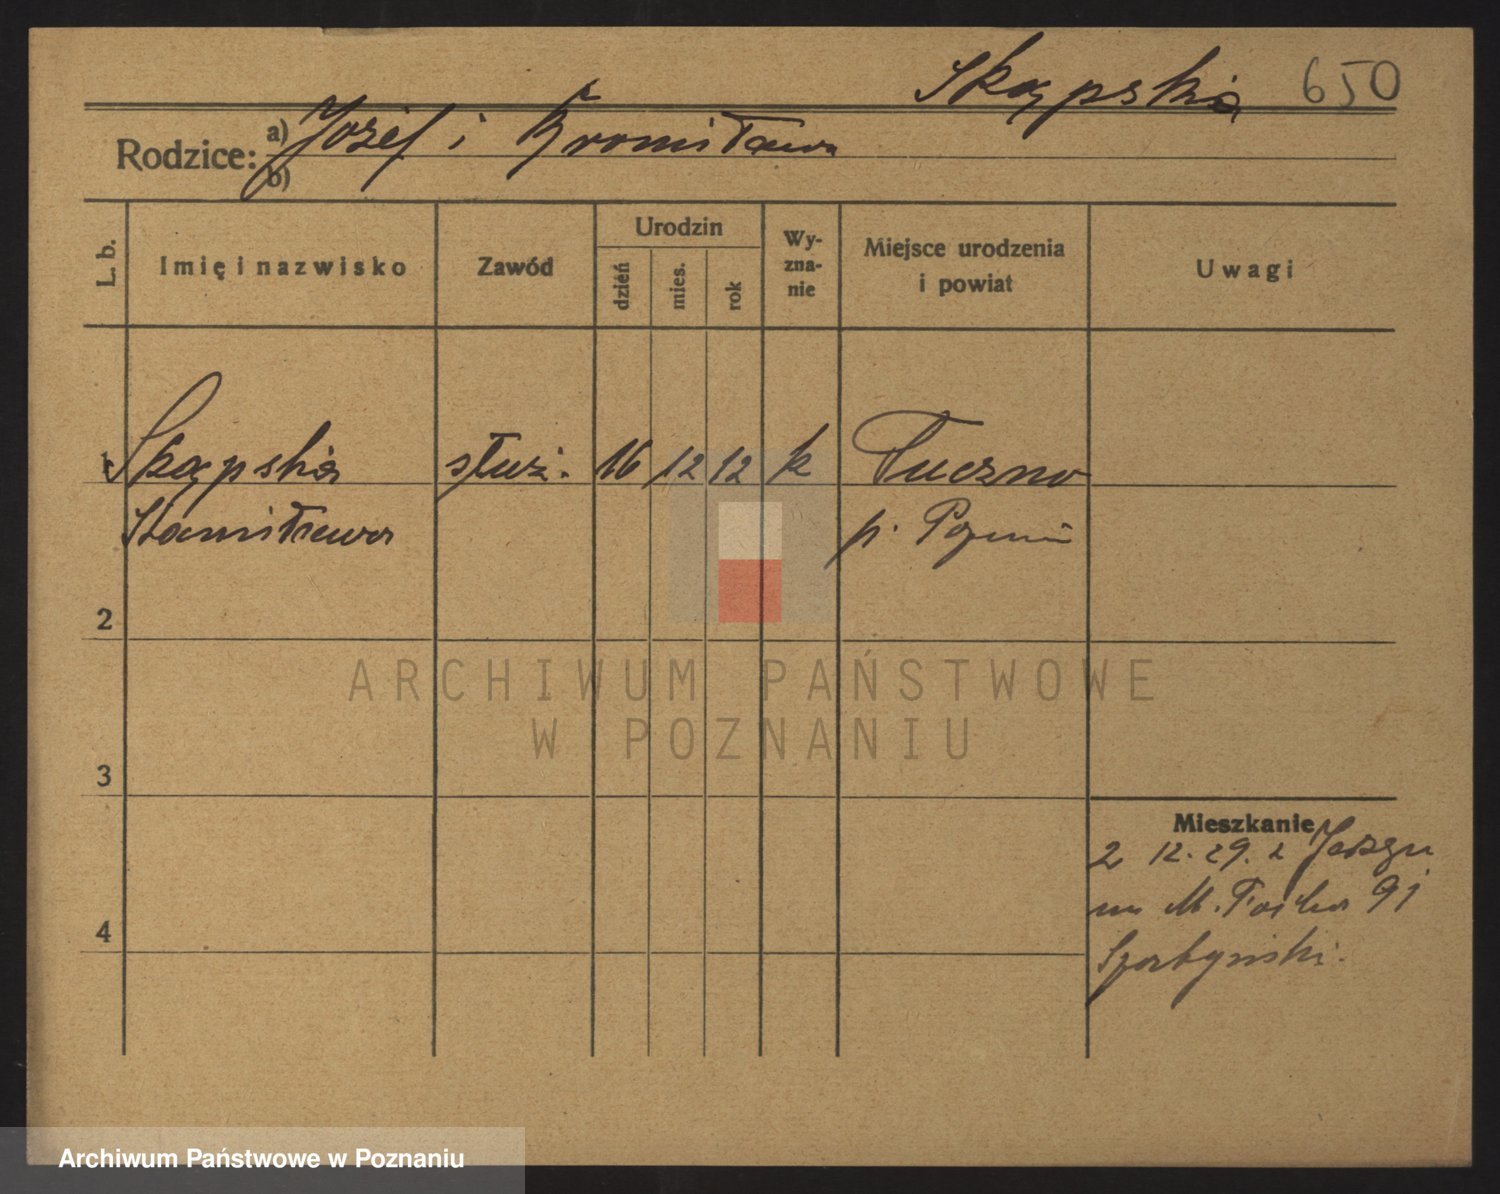 Skąpska 650
Rodzice: a) Józef i Bronisława
b)
L. b.
Imię i nazwisko
Zawód
Urodzin
dzień
mies.
rok
Wy-
zna-
nie
Miejsce urodzenia
i powiat
Uwagi
1 Skąpska służ. 16 12 12 k Tuczno
Stanisława p. Poznań
2
3
4
Mieszkanie
2 12.29. z
M. Focha 91
ARCHIWUM PAŃSTWOWE
W POZNANIU
Archiwum Państwowe w Poznaniu